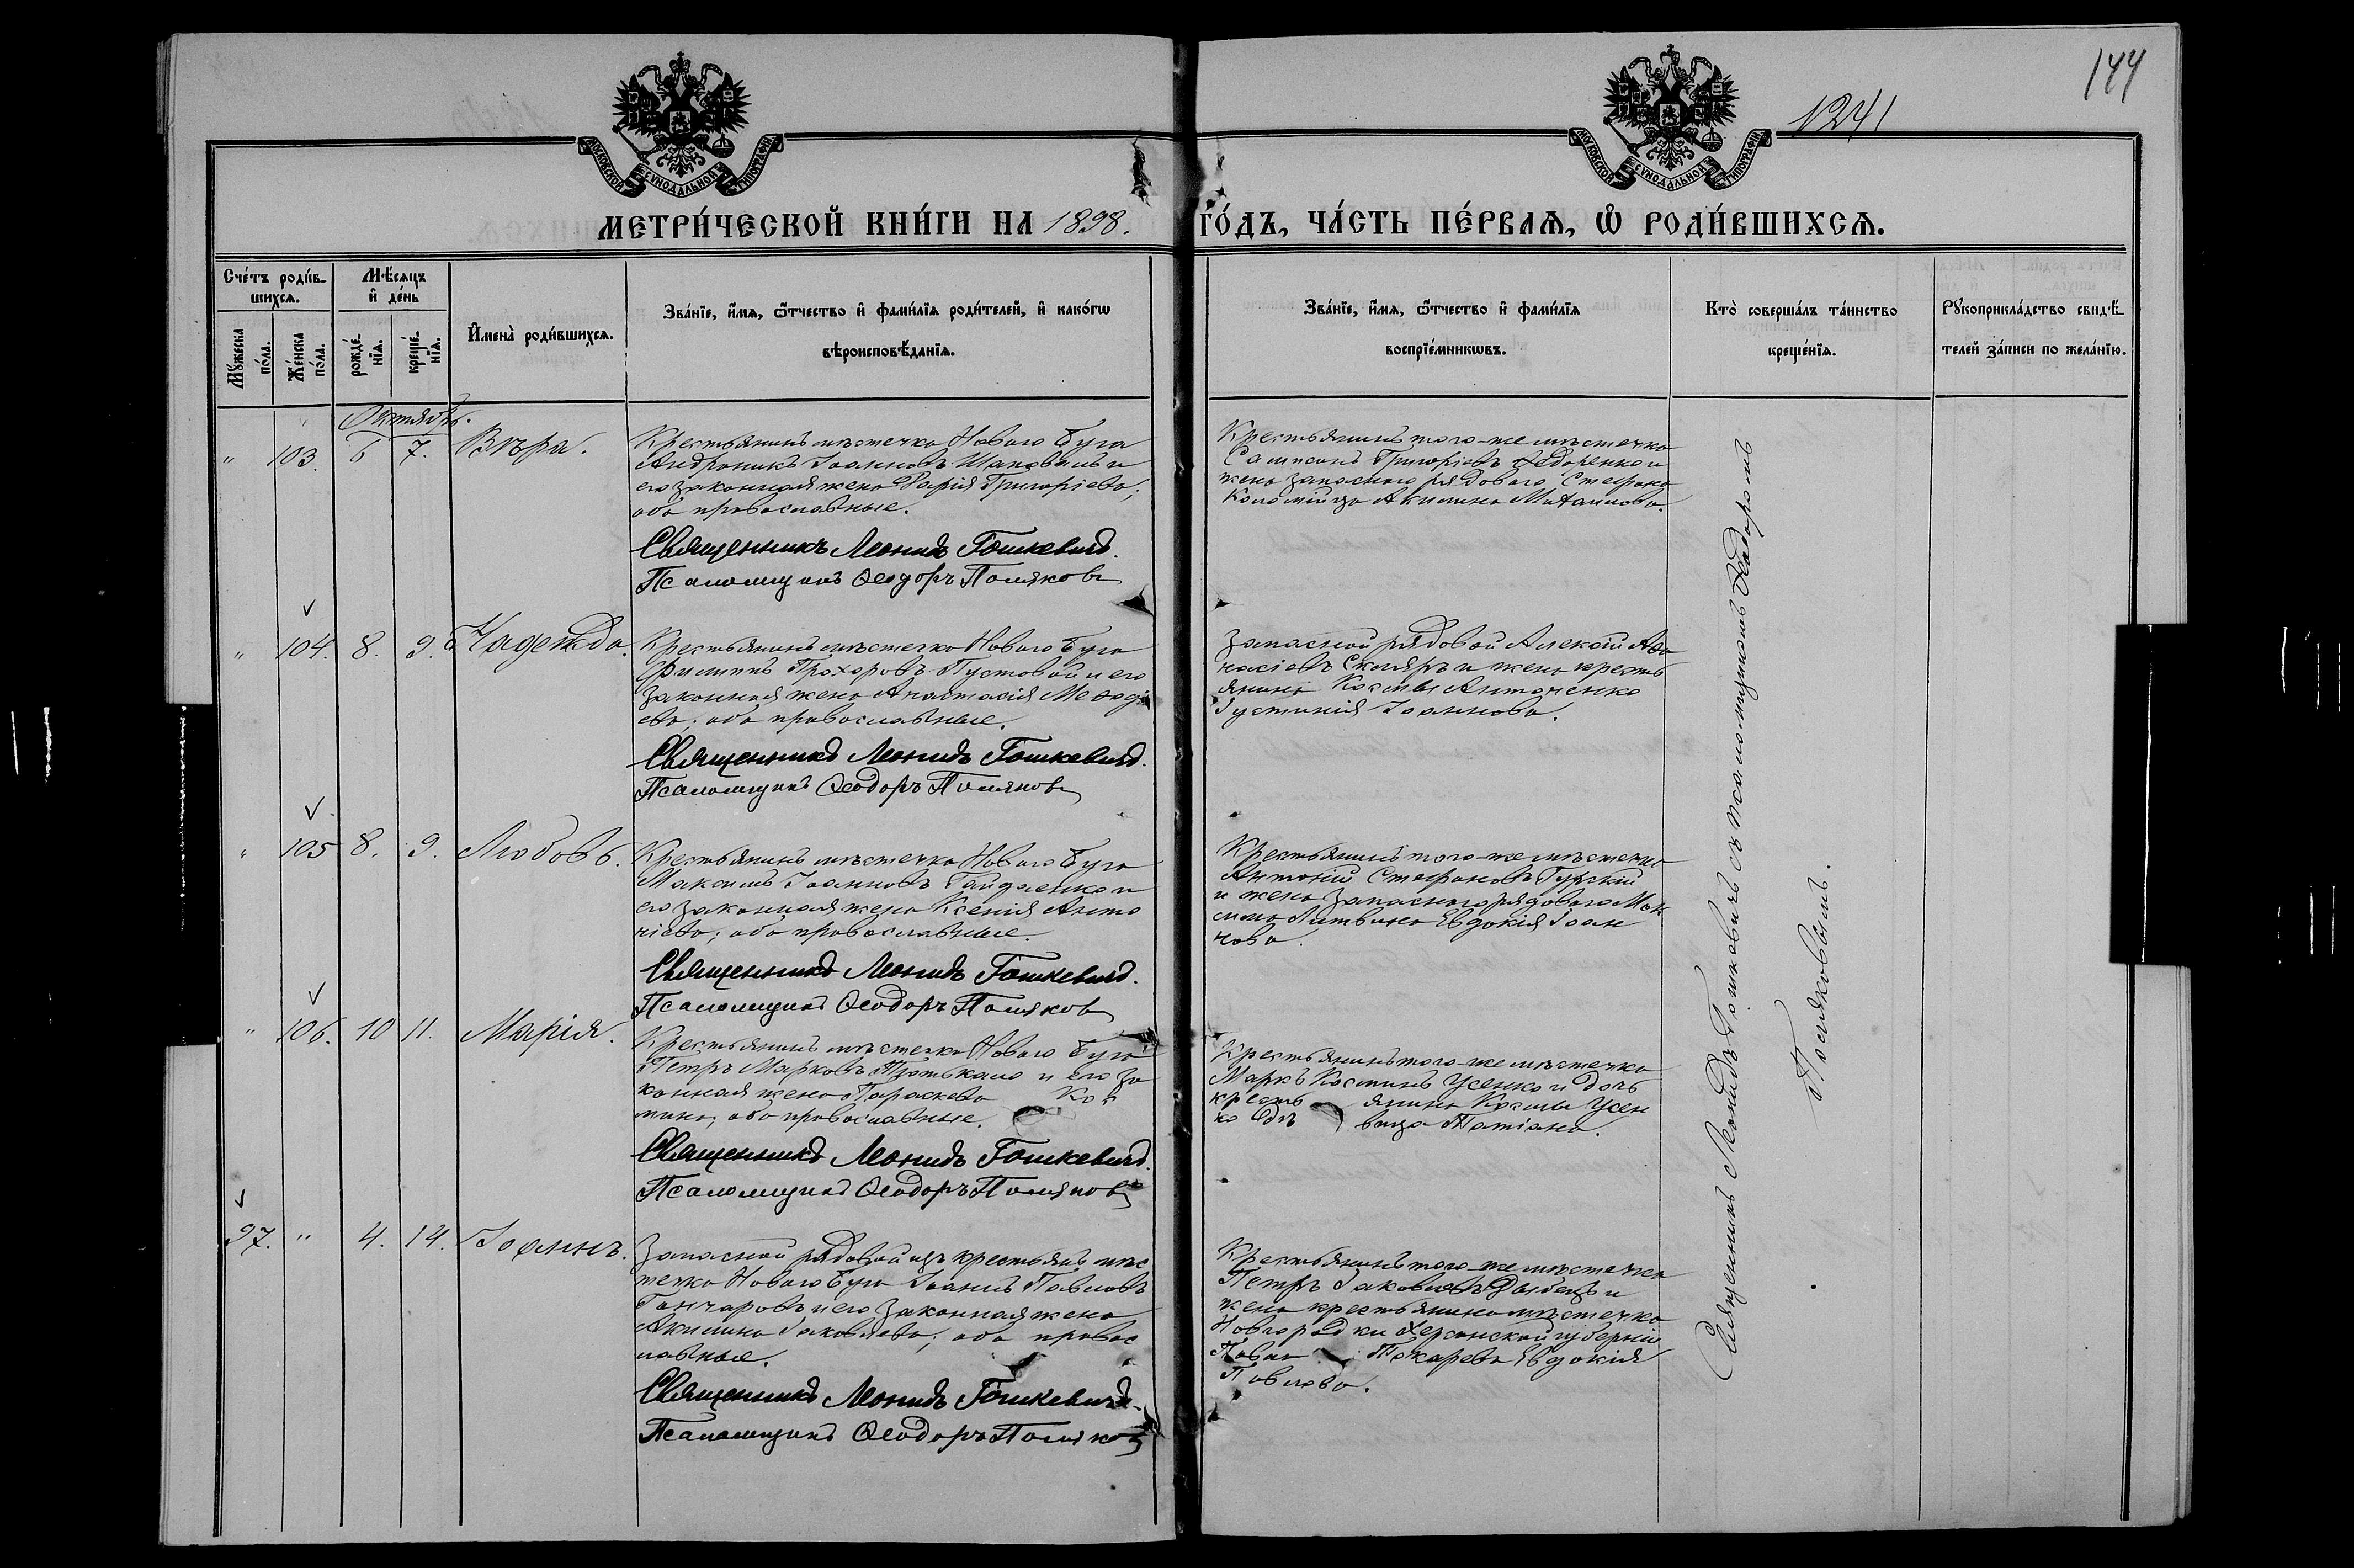 144
1241
МОСКОВСКОЙ СУНОДАЛЬНОЙ ТИПОГРАФІИ
МОСКОВСКОЙ СУНОДАЛЬНОЙ ТИПОГРАФІИ
МЕТРИ́ЧЕСКОЙ КНИ́ГИ НА 1898. ГО́ДЪ, ЧА́СТЬ ПЕ́РВАѦ, Ѡ РОДИ́ВШИХСѦ.
Сче́тъ роди́в-
шихсѧ.
Мꙋ́жеска
по́ла.
Же́нска
по́ла.
Мѣ́сяцъ
и҆ де́нь
рожде́-
нїѧ.
креще́-
нїѧ.
И҆мена̀ роди́вшихсѧ.
Зва́нїе, и҆́мѧ, ѻ҆́тчество и҆ фами́лїѧ роди́телей, и҆ како́гѡ
вѣроисповѣ́данїѧ.
Зва́нїе, и҆́мѧ, ѻ҆́тчество и҆ фами́лїѧ
воспрїе́мникѡвъ.
Кто̀ соверша́лъ та́инство
креще́нїѧ.
Рꙋкоприкла́дство свидѣ́-
телей за́писи по жела́нїю.
Октябрь.
" 103. 6 7. Вѣра.
Крестьянинъ мѣстечка Новаго Буга
Андроникъ Іоанновъ Шаповалъ и
его законная жена Марія Григоріева;
оба православные.
Священникъ Леонидъ Гошкевичъ.
Псаломщикъ Ѳеодоръ Поляковъ
Крестьянинъ того-же мѣстечка
Сампсонъ Григоріевъ Ѳедоренко и
жена запаснаго рядоваго Стефана
Коломійца Акилина Михаилова.
" 104. 8. 9. Надежда.
Крестьянинъ мѣстечка Новаго Буга
Филиппъ Прохоровъ Пустовой и его
законная жена Анастасія Меѳоді
ева; оба православные.
Священникъ Леонидъ Гошкевичъ.
Псаломщикъ Ѳеодоръ Поляковъ
Запасной рядовой Алексій Аѳа
насіевъ Скляръ и жена кресть
янина Космы Антоненко
Іустинія Іоаннова.
" 105 8. 9. Любовь.
Крестьянинъ мѣстечка Новаго Буга
Максимъ Іоанновъ Гайдаенко и
его законная жена Ксенія Анто
ніева; оба православные.
Священникъ Леонидъ Гошкевичъ.
Псаломщикъ Ѳеодоръ Поляковъ
Крестьянинъ того-же мѣстечка
Антоній Стефановъ Гурскій
и жена запаснаго рядоваго Мак
сима Литвина Евдокія Іоан
нова.
" 106. 10 11. Марія.
Крестьянинъ мѣстечка Новаго Буга
Петръ Марковъ и его за
конная жена Параскева Кос
мина; оба православные.
Священникъ Леонидъ Гошкевичъ.
Псаломщикъ Ѳеодоръ Поляковъ
Крестьянинъ того-же мѣстечка
Маркъ Косминъ Усенко и дочь
кресть янина Космы Усен
ко дѣ вица Татіана.
97. " 4. 14. Іоаннъ.
Запасной рядовой изъ крестьянъ мѣс
течка Новаго Буга Іоаннъ Павловъ
Гончаровъ и его законная жена
Акилина Іаковлева; оба правос
лавные.
Священникъ Леонидъ Гошкевичъ.
Псаломщикъ Ѳеодоръ Поляковъ
Крестьянинъ того-же мѣстечка
Петръ Іаковлевъ и
жена крестьянина мѣстечка
Новгородки Херсонской губерніи
Павла Токарева Евдокія
Павлова.
Священникъ Леонидъ Гошкевичъ съ псаломщикомъ Ѳеодоромъ
Поляковымъ.